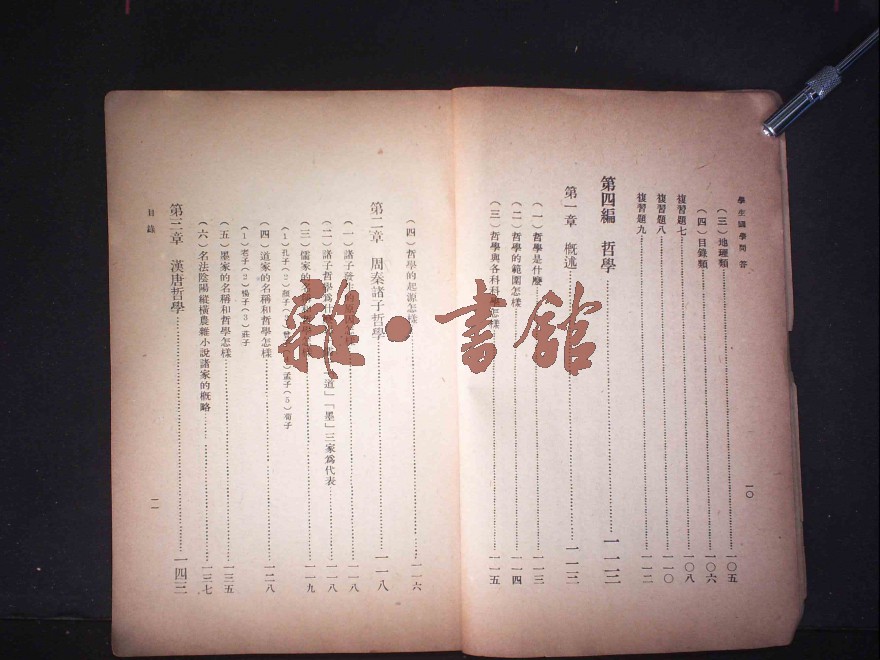 學生國學問答
（三）地理類 一〇五
（四）目錄類 一〇六
複習題七 一〇八
複習題八 一一〇
複習題九 一一二
第四編 哲學 一一三
第一章 概述 一一三
（一）哲學是什麼 一一三
（二）哲學的範圍怎樣 一一四
（三）哲學與各科科學怎樣 一一五
一〇
（四）哲學的起源怎樣 一一六
第二章 周秦諸子哲學 一一八
（一）諸子發 一一八
（二）諸子哲學爲什 道」「墨」三家爲代表 一一八
（三）儒家的名稱 一一九
（1）孔子（2）顏子（3） 孟子（5）荀子
（四）道家的名稱和哲學怎樣 一二八
（1）老子（2）楊子（3）莊子
（五）墨家的名稱和哲學怎樣 一三五
（六）名法陰陽縱橫農雜小說諸家的概略 一三七
第三章 漢唐哲學 一四三
目錄
一一
雜·書館